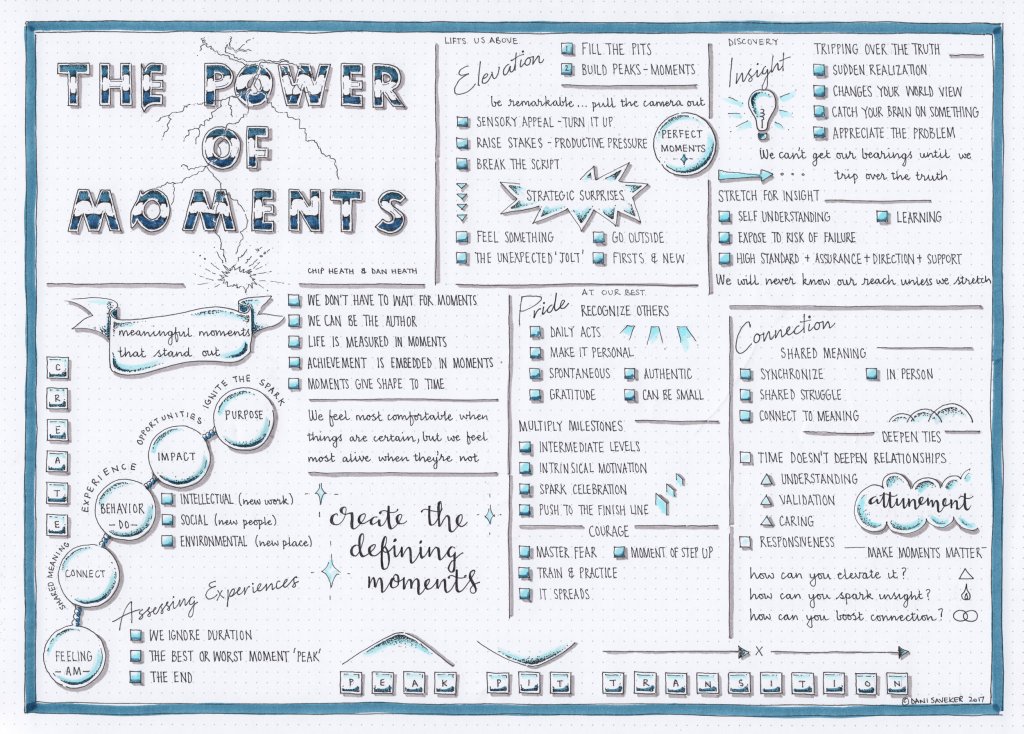 THE POWER
OF
MOMENTS
CHIP HEATH & DAN HEATH
meaningful moments
that stand out
WE DON'T HAVE TO WAIT FOR MOMENTS
WE CAN BE THE AUTHOR
LIFE IS MEASURED IN MOMENTS
ACHIEVEMENT IS EMBEDDED IN MOMENTS
MOMENTS GIVE SHAPE TO TIME
We feel most comfortable when
things are certain, but we feel
most alive when they're not
CREATE
IGNITE THE SPARK
PURPOSE
OPPORTUNITIES
IMPACT
EXPERIENCE
BEHAVIOR
-DO-
SHARED MEANING
CONNECT
FEELING
-AM-
INTELLECTUAL (new work)
SOCIAL (new people)
ENVIRONMENTAL (new place)
create the
defining
moments
Assessing Experiences
WE IGNORE DURATION
THE BEST OR WORST MOMENT 'PEAK'
THE END
LIFTS US ABOVE
Elevation
1 FILL THE PITS
2 BUILD PEAKS-MOMENTS
be remarkable... pull the camera out
SENSORY APPEAL -TURN IT UP
RAISE STAKES - PRODUCTIVE PRESSURE
BREAK THE SCRIPT
PERFECT
MOMENTS
STRATEGIC SURPRISES
FEEL SOMETHING
GO OUTSIDE
THE UNEXPECTED 'JOLT'
FIRSTS & NEW
DISCOVERY
Insight
TRIPPING OVER THE TRUTH
SUDDEN REALIZATION
CHANGES YOUR WORLD VIEW
CATCH YOUR BRAIN ON SOMETHING
APPRECIATE THE PROBLEM
We can't get our bearings until we
... trip over the truth
STRETCH FOR INSIGHT
SELF UNDERSTANDING
LEARNING
EXPOSE TO RISK OF FAILURE
HIGH STANDARD + ASSURANCE+DIRECTION+SUPPORT
We will never know our reach unless we stretch
AT OUR BEST
Pride
RECOGNIZE OTHERS
DAILY ACTS
MAKE IT PERSONAL
SPONTANEOUS
AUTHENTIC
GRATITUDE
CAN BE SMALL
MULTIPLY MILESTONES
INTERMEDIATE LEVELS
INTRINSICAL MOTIVATION
SPARK CELEBRATION
PUSH TO THE FINISH LINE
COURAGE
MASTER FEAR
MOMENT OF STEP UP
TRAIN & PRACTICE
IT SPREADS
Connection
SHARED MEANING
SYNCHRONIZE
IN PERSON
SHARED STRUGGLE
CONNECT TO MEANING
DEEPEN TIES
TIME DOESN'T DEEPEN RELATIONSHIPS
UNDERSTANDING
VALIDATION
CARING
attunement
RESPONSIVENESS
MAKE MOMENTS MATTER
how can you elevate it?
how can you spark insight?
how can you boost connection?
X
PEAK PIT TRANSITION
© DANI SAVEKER 2017